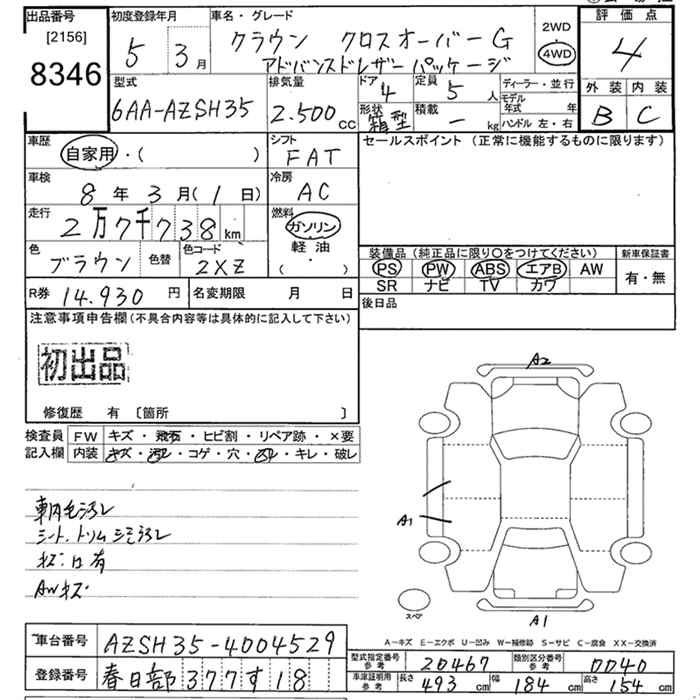 出品番号 初度登録年月 車名・グレード 2WD 評価点
[2156] 5 3月 クラウン クロスオーバーG 4WD 4
8346 アドバンスドレザーパッケージ
型式 排気量 ドア 定員 ディーラー・並行 外装 内装
6AA-AZSH35 2.500cc 4 5人 モデル年式 年 B C
形状 箱型 積載 - kg ハンドル 左・右
車歴 シフト セールスポイント (正常に機能するものに限ります)
自家用・( ) FAT
車検 冷房
8年3月(1日) AC
走行 燃料
2万7千738km ガソリン
軽油
・( )
色 ブラウン 色替 色コード 2XZ
装備品 (純正品に限り○をつけてください) 新車保証書
PS PW ABS エアB AW 有・無
SR ナビ TV カワ
R券 14.930円 名変期限 月 日 後日品
注意事項申告欄(不具合内容等は具体的に記入して下さい)
初出品
修復歴 有 〔箇所 〕
検査員 FW キズ・飛石・ヒビ割・リペア跡・×要
記入欄 内装 キズ・汚レ・コゲ・穴・スレ・キレ・破レ
車内毛汚レ
シート、トリムシミ汚レ
AWキズ
A2
A1
スペア
A1
A-キズ E-エクボ U-凹み W-補修跡 S-サビ C-腐食 XX-交換済
車台番号 AZSH35-4004529
登録番号 春日部377す18
型式指定番号 参考 20467 類別区分番号 参考 0040
車庫証明用 参考 長さ 493cm 幅 184cm 高さ 154cm